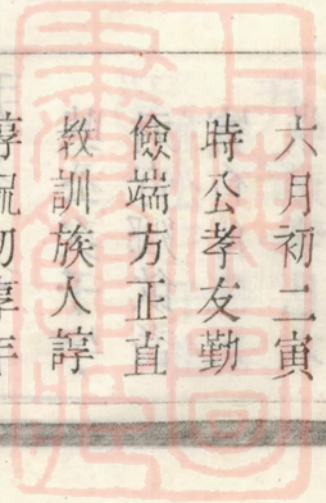 六月初二寅
時公孝友勤
儉端方正直
教訓族人諄
諄